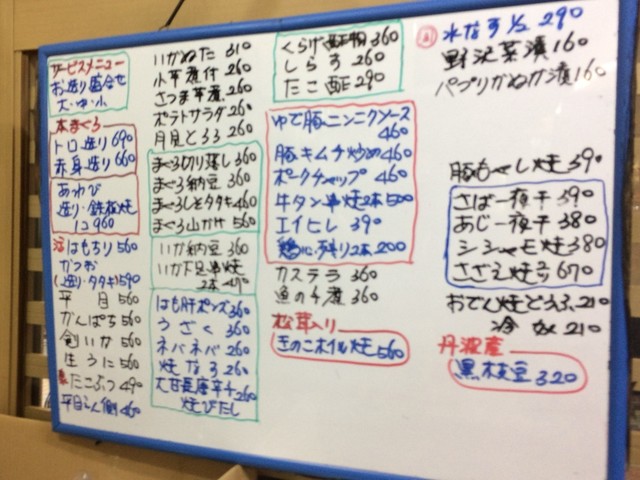 サービスメニュー
お造り盛合せ
大・中・小
本まぐろ
トロ造り 690
赤身造り 660
あわび
造り・鉄板焼
1コ 960
はもちり 560
かつお
(造り・タタキ) 590
平目 560
かんぱち 560
剣いか 560
生うに 560
たこぶつ 490
平目えん側 460
いかぬた 310
小芋煮付 260
さつま芋煮 260
ポテトサラダ 260
月見とろろ 260
まぐろ切り落し 360
まぐろ納豆 360
まぐろレアタタキ 460
まぐろ山かけ 560
いか納豆 360
いか下足串焼
2本
はも肝ポンズ 360
うざく 360
ネバネバ 260
焼なす 260
万甘長唐辛子 260
焼びたし
くらげ酢の物 360
しらす 260
たこ酢 290
ゆで豚ニンニクソース
460
豚キムチ炒め 460
ポークチャップ 460
牛タン串焼2本 500
エイヒレ 390
鶏心デキリ2本 200
カステラ 360
魚の子煮 360
松茸入り
きのこホイル焼 560
水なす 1/2 290
野沢菜漬 160
パプリカぬか漬 160
豚もやし焼 390
さば一夜干 390
あじ一夜干 380
ししゃも焼 380
さざえ焼 670
おでん焼どうふ 210
冷奴 210
丹波産
黒枝豆 320